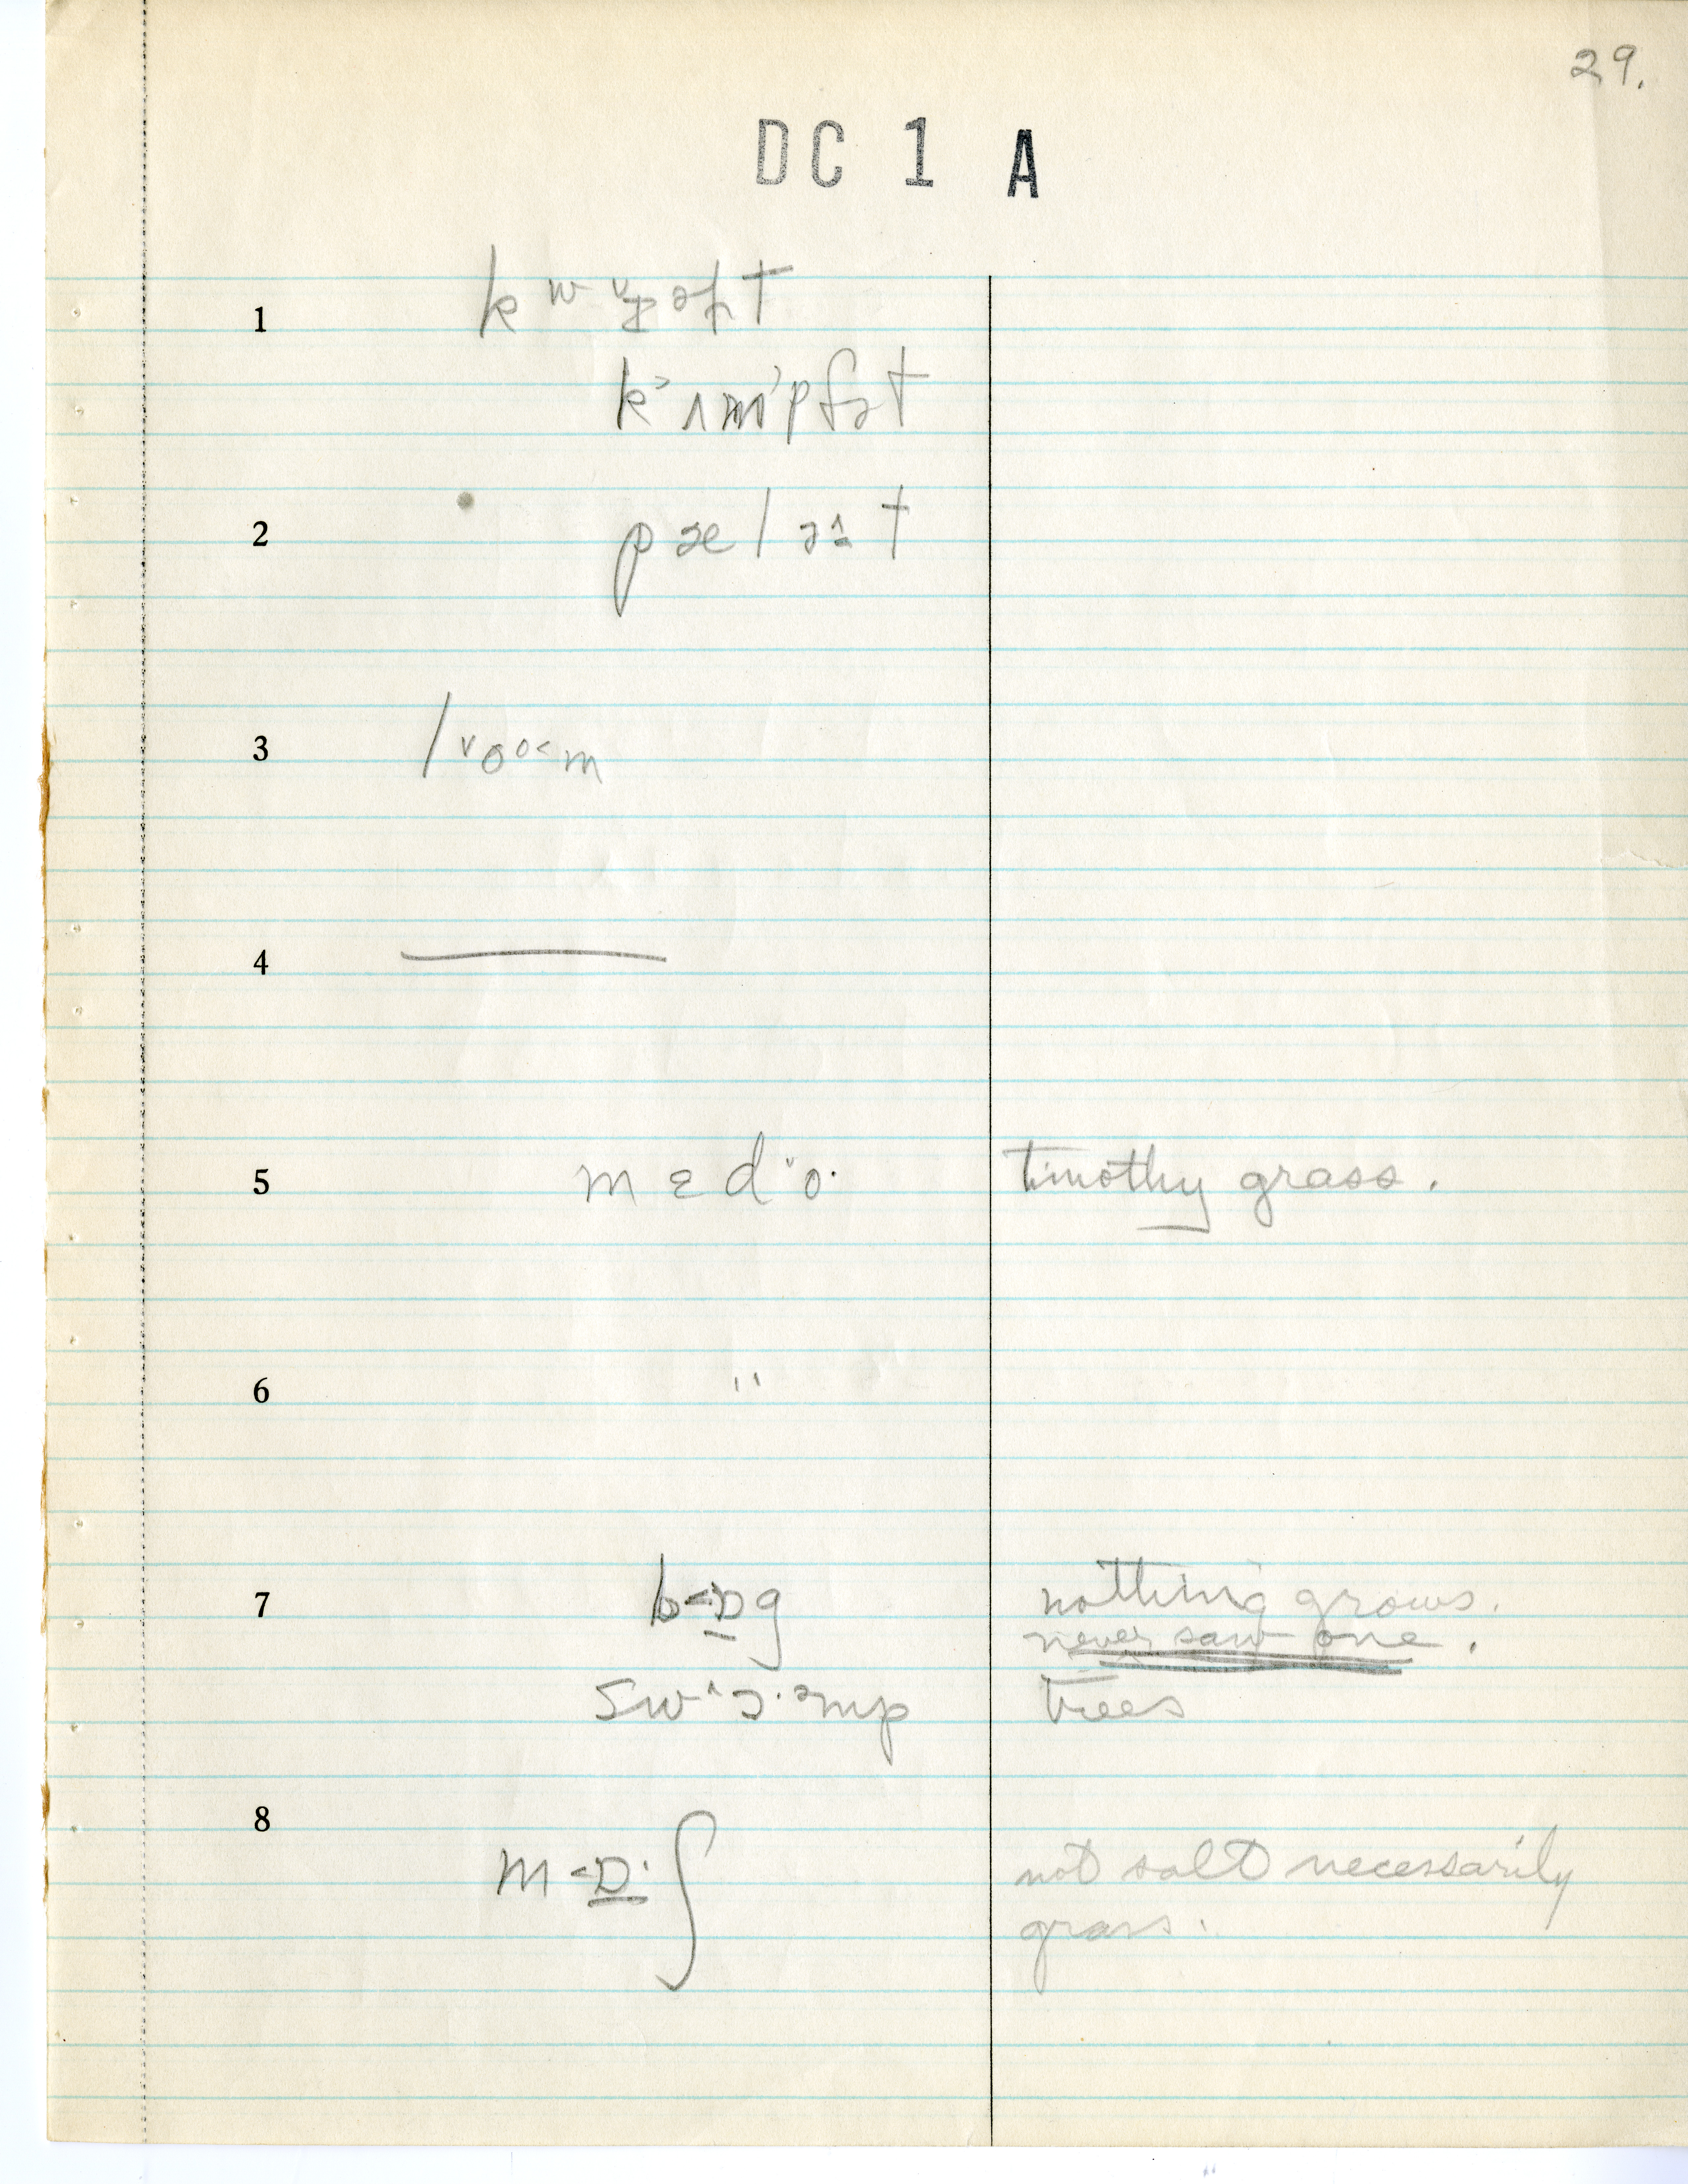 29.
DC 1 A
1
k˃ʌm˃pfət
2
pæləɨt
3
4
5 mɛd˅o· timothy grass.
6 "
7 b˂ɒg nothing grows.
never saw one.
sw^ɔ·əmp trees
8 m˂ɒ·ʃ not salt necessarily
grass.